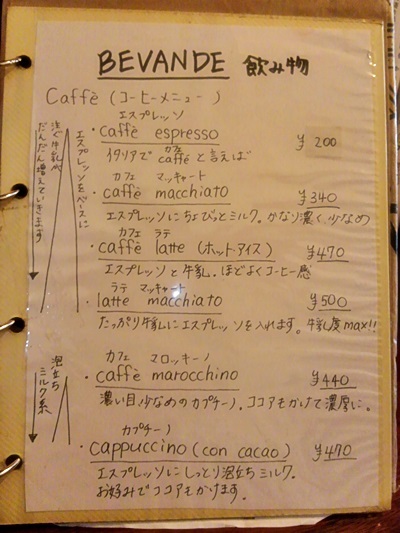 BEVANDE 飲み物
Caffè (コーヒーメニュー)
エスプレッソ
・caffè espresso ¥200
イタリアでcaffèと言えば
カフェ
カフェ マッキャート
・caffè macchiato ¥340
エスプレッソにちょびっとミルク。かなり濃く、少なめ
カフェ ラテ
・caffè latte (ホット・アイス) ¥470
エスプレッソと牛乳。ほどよくコーヒー感
ラテ マッキャート
・latte macchiato ¥500
たっぷり牛乳にエスプレッソを入れます。牛乳度max!!
カフェ マロッキーノ
・caffè marocchino ¥440
濃い目、少なめのカプチーノ。ココアもかけて濃厚に。
カプチーノ
・cappuccino (con cacao) ¥470
エスプレッソにしっとり泡立ちミルク。
お好みでココアもかけます。
エスプレッソをベースに
注ぐ牛乳が
だんだん増えていきます
泡立ち
ミルク系